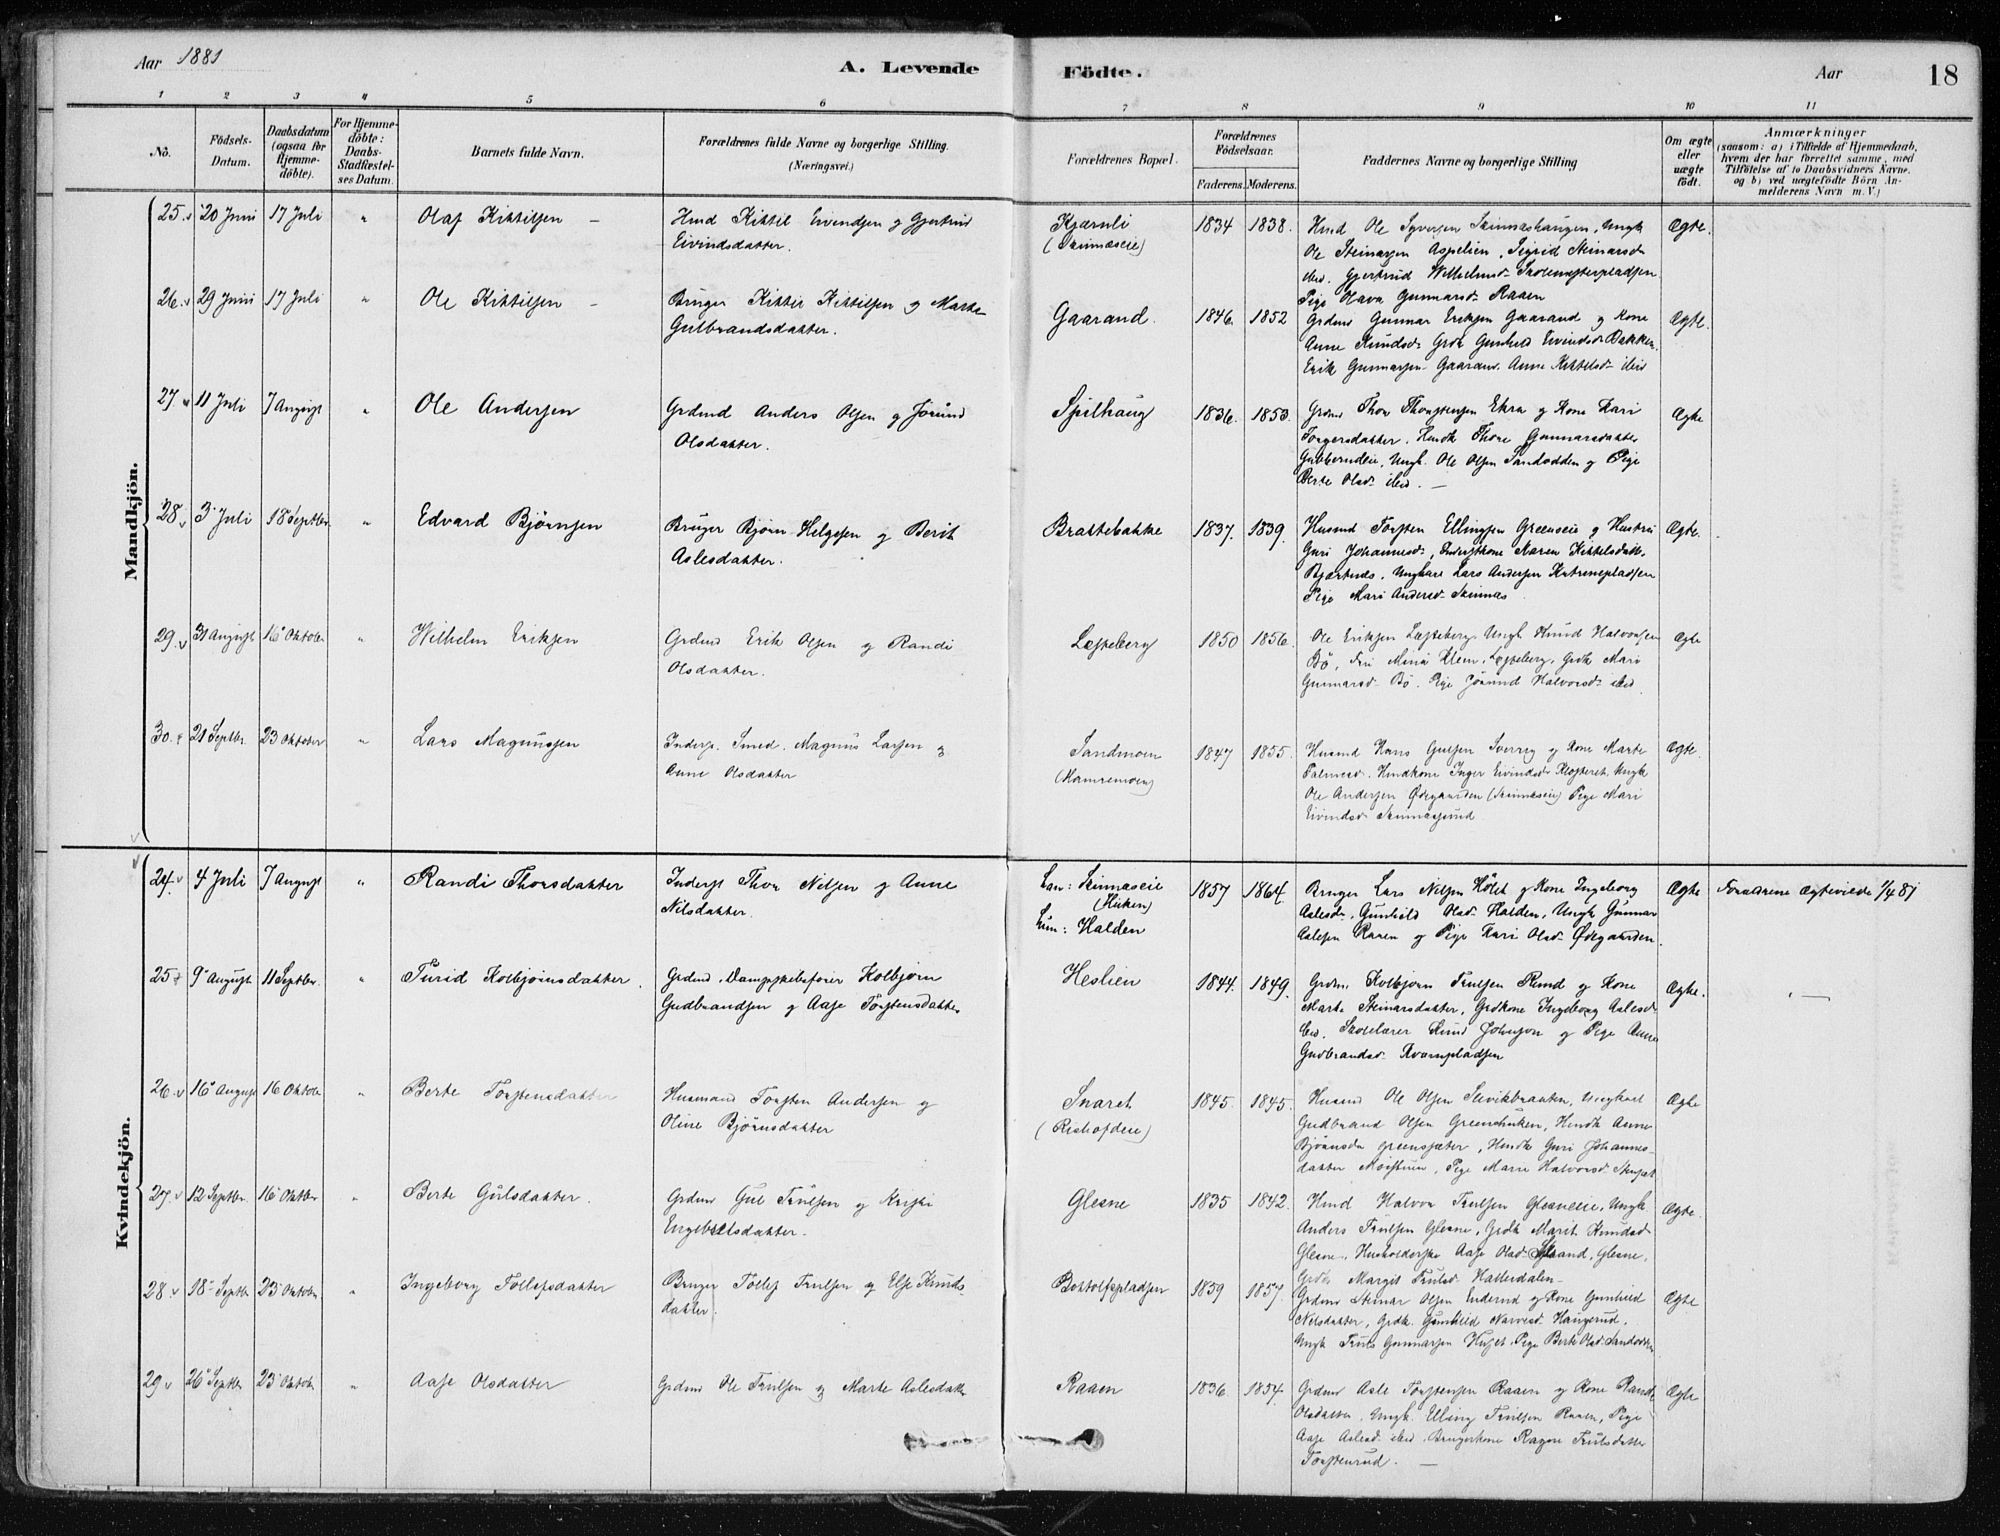 Aar 1881
A. Levende
Födte.
Aar
18
1 2 3 4 5 6 7 8 9 10 11
No.
Födsels-Datum.
Daabsdatum (ogsaa for Hjemme-döbte).
For Hjemme-döbte: Daabs-Stadfestel-ses Datum.
Barnets fulde Navn.
Forældrenes fulde Navne og borgerlige Stilling. (Næringsvei.)
Forældrenes Bopæl.
Forældrenes Födselsaar.
Faderens. Moderens.
Faddernes Navne og borgerlige Stilling
Om ægte eller uægte födt.
Anmærkninger
(saasom: a) i Tilfælde af Hjemmedaab,
hvem der har forrettet samme, med
Tilföielse af to Daabsvidners Navne.
og b) ved uægtefödte Börn An-
melderens Navn m.V.)
Mandkjön.
25. 20 Juni 17 Juli " Olaf Kittilsen –
Hmd Kittil Eivendsen og Gjertrud
Eivindsdatter.
Kjærnli
(Skinnæseie)
1834 1838.
Hmd Ole Syversen Skinnæshaugen, Ungk
Ole Steinarsen Aspelien, Sigrid Steinarsd
ibid. Gjertrud Wilhelmsd. Skolemesterpladsen
Pige Hava Gunnarsd. Raaen
Ægte.
26. 29 Juni 17 Juli " Ole Kittilsen –
Bruger Kittil Kittilsen og Marte
Gulbrandsdatter.
Gaarand.
1846. 1852
Grdmd Gunnar Eriksen Gaarand og Kone
Anne Knudsd. Grdk Gunhild Eivindsd. Bakken.
Erik Gunnarsen Gaarand. Anne Kittelsd. ibid
Ægte.
27. 11 Juli 7 August " Ole Andersen
Grdmd Anders Olsen og Jørund
Olsdatter.
Spilhaug
1836. 1853.
Grdmd Thor Thorstensen Ekra og Kone Kari
Torgersdatter. Hmdk Thone Gunnarsdatter
Ungk. Ole Olsen Sandodden og Pige
Berte Olsd. ibid. –
Ægte
28. 3 Juli 18 Septbr. " Edvard Bjørnsen
Bruger Bjørn Helgesen og Berit
Aslesdatter.
Brattebakke
1837. 1839.
Husmd Torsten Ellingsen Greenseie og Hustru
Guri Johannesd., Inderstkone Karen Kittelsdatt.
Bjertnæs. Ungkarl Lars Andersen Katrinepladsen
Pige Mari Andersd. Skinnæs
Ægte.
29. 31 August 16 Oktober " Wilhelm Eriksen
Grdmd Erik Olsen og Randi
Olsdatter.
Lesteberg
1850 1856.
Ole Eriksen Lesteberg. Ungk Knud Halvorsen
Bö, Frk Mina Klem, Lesteberg, Grdk Mari
Gunnarsd. Bö. Pige Jörund Halvorsd. ibid.
Ægte
30. 21 Septbr. 23 Oktober " Lars Magnussen
Inders. Smed. Magnus Larsen og
Anne Olsdatter
Sandmoen
(Hamremoen)
1847 1855.
Husmd Hans Gulsen Sverrig og Kone Marte
Palmesd. Hmdkone Inger Eivindsd. Klosteret. Ungk
Ole Andersen Ødegaarden (Skinnæseie) Pige Mari
Eivindsd. Skinnæsgrund
Ægte.
Kvindekjön.
24. 4 Juli 7 August " Randi Thorsdatter
Inderst Thor Nilsen og Anne
Nilsdatter.
Han: Skinnæseie
(Huken)
Hun: Halden
1857 1864.
Bruger Lars Nilsen Holet og Kone Ingeborg
Aslesd., Gunhild Olsd. Halden, Ungk Gunnar
Aslesen Raaen og Pige Kari Olsd. Ødegaarden.
Ægte
Forældrene Ægteviede 1/4 81
25 9 August 11 Septbr. " Turid Kolbjørnsdatter.
Grdmd, Dampskibsfører Kolbjørn
Gudbrandsen og Aase Torstensdatter
Heslien
1844. 1849.
Grdm. Kolbjørn Trulsen Rund og Kone
Marte Steinarsdatter, Grdkone Ingeborg Aslesd.
ibid. Skolelærer Knud Johnson og Pige Anne
Gudbrandsd. Kvarnpladsen
Ægte. "–
26. 16 August 16 Oktober " Berte Torstensdatter
Husmand Torsten Andersen og
Oline Bjørnsdatter
Snaret
(Rishofdeie)
1845. 1845.
Husmd Ole Olsen Slevikbraaten, Ungkarl
Gudbrand Olsen Greenshuken, Hmdk Anne
Bjørnsda Greensæter, Hmdk Guri Johannes-
datter Moistuen, Pige Marie Halvorsd.
Ægte
27. 12 Septbr. 16 Oktober " Berte Gulsdatter.
Grdmd Gul Trulsen og Kristi
Engebretsdatter.
Glesne
1835 1842.
Hmd Halvor Trulsen Glesneeie. Ungk.
Anders Trulsen Glesne, Grdk Marit Knudsd.
Glesne. Husholderske Aase Olsd. Glesne,
Grdk Margit Trulsd. Hallerdalen –
Ægte.
28. 18 Septbr 23 Oktober " Ingeborg Tollefsdatter
Bruger Tollef Trulsen og Else Knuds-
datter.
Bottolfspladsen
1859 1857.
Grdmd Steinar Olsen Enderud og Kone Gunhild
Nilsdatter, Grdk. Gunhild Narvesd. Haugerud.
Ungk Truls Gunnarsen Huset. Pige Berte Olsd. Sandodden
Ægte
29 26 Septbr 23 Oktober " Aase Olsdatter
Grdmd Ole Trulsen og Marte Aslesdatter
Raaen
1836. 1854.
Grdmd Asle Torstensen Raaen og Kone Randi
Olsdatter, Ungk. Elling Trulsen Raaen, Pige
Aase Aslesd. ibid. Brugerkone Ragne Trulsdatter
Torstenrud. –
Ægte